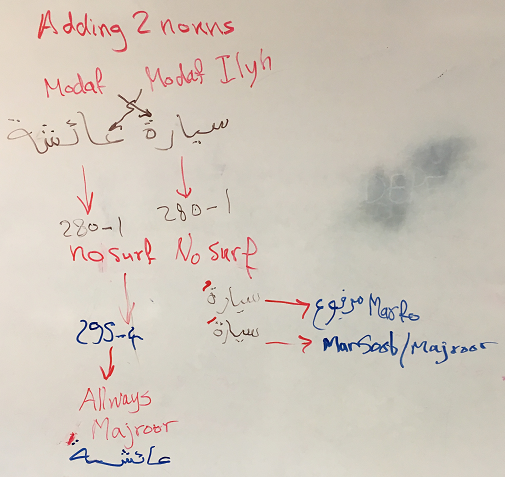 Adding 2 nouns
Modaf Modaf Ilyh
سيارة عائشة
280-1 280-1
no surf No surf
سيارة مرفوع Marfo
295-4 سيارة ManSoob/Majroor
Allways
Majroor
عائشة